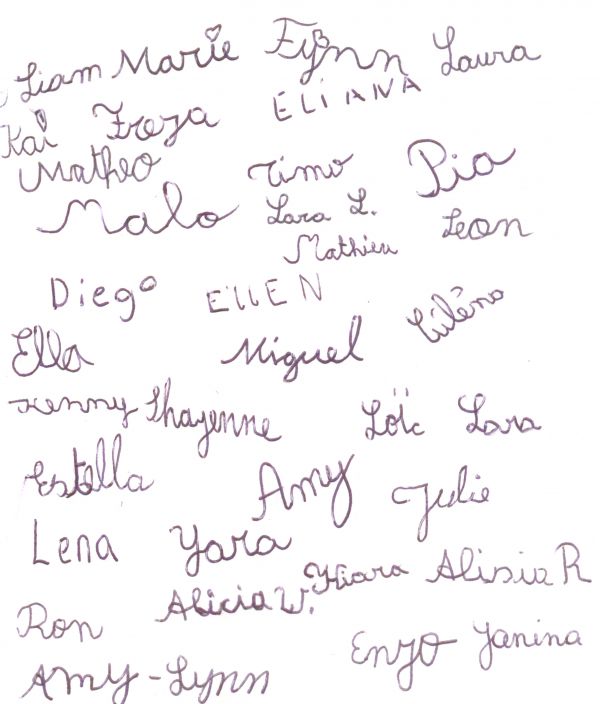 Liam Marie Fynn Laura
Kai Freya ELIANA
Matheo Timo Pia
Malo Lara L. Leon
Mathieu
Diego EllEN
Ella Miguel
Kenny Shayenne Loïc Lara
Estella Amy Julie
Lena Yara
Ron Alicia W. Kiara Alisia R
Amy-Lynn Enzo Janina